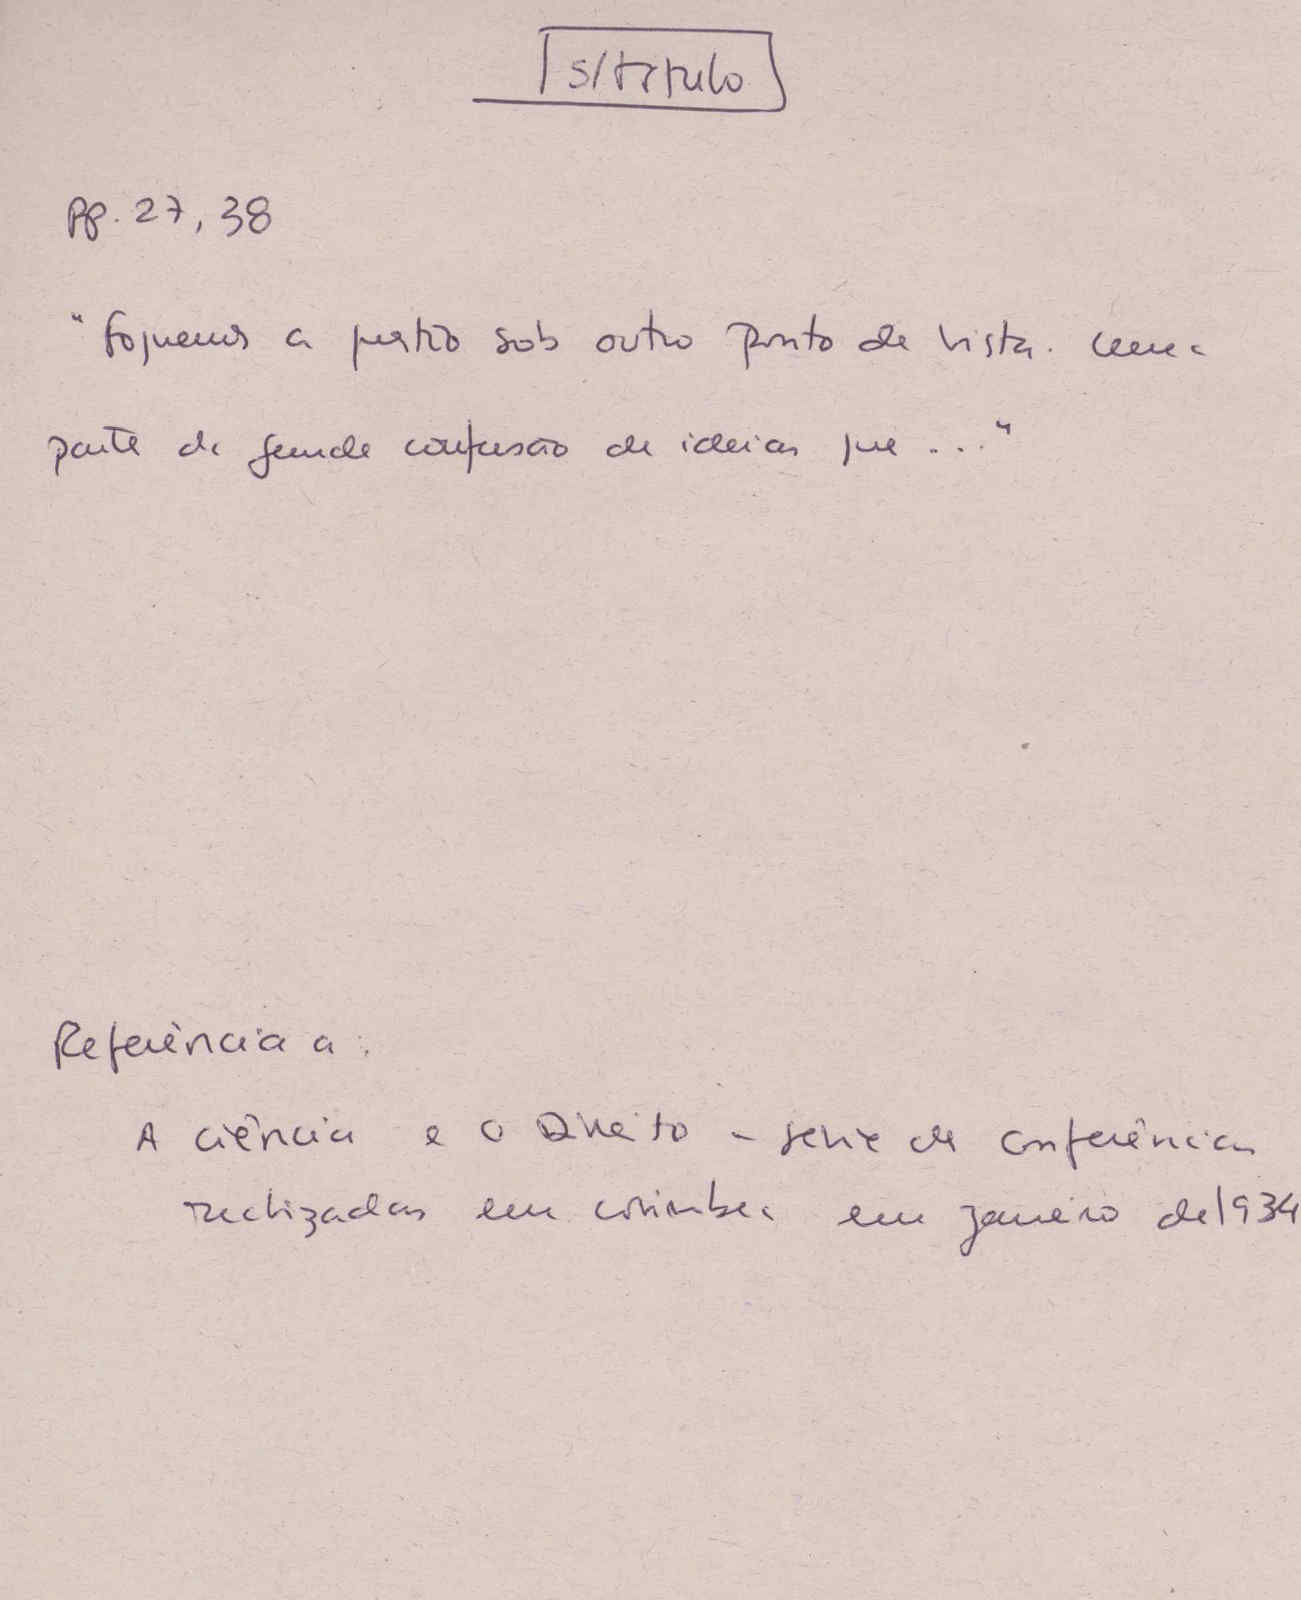 s/título
pp. 27, 38
"Foquemos a questão sob outro ponto de vista. Uma
parte da grande confusão de ideias que ..."
Referência a:
A ciência e o Direito - série de conferências
realizadas em Coimbra em janeiro de 1934